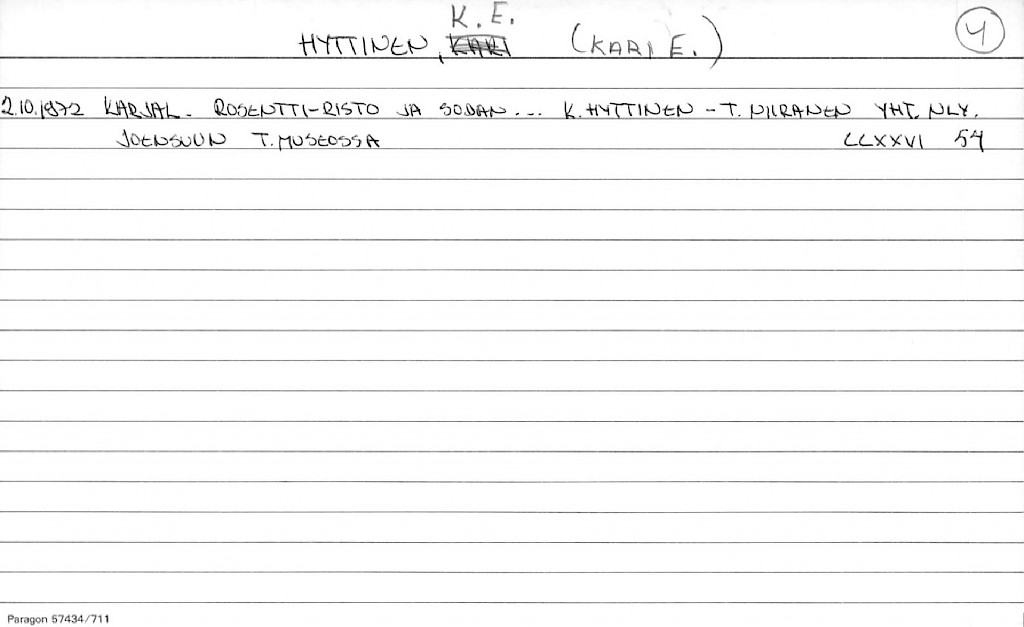 K. E.
HYTTINEN, KARI (KARI E.) 4
2.10.1972 KARJAL. ROSENTTI-RISTO JA SODAN... K. HYTTINEN - T. NIIRANEN YHT. NLY.
JOENSUUN T. MUSEOSSA LLXXVI 54
Paragon 57434/711